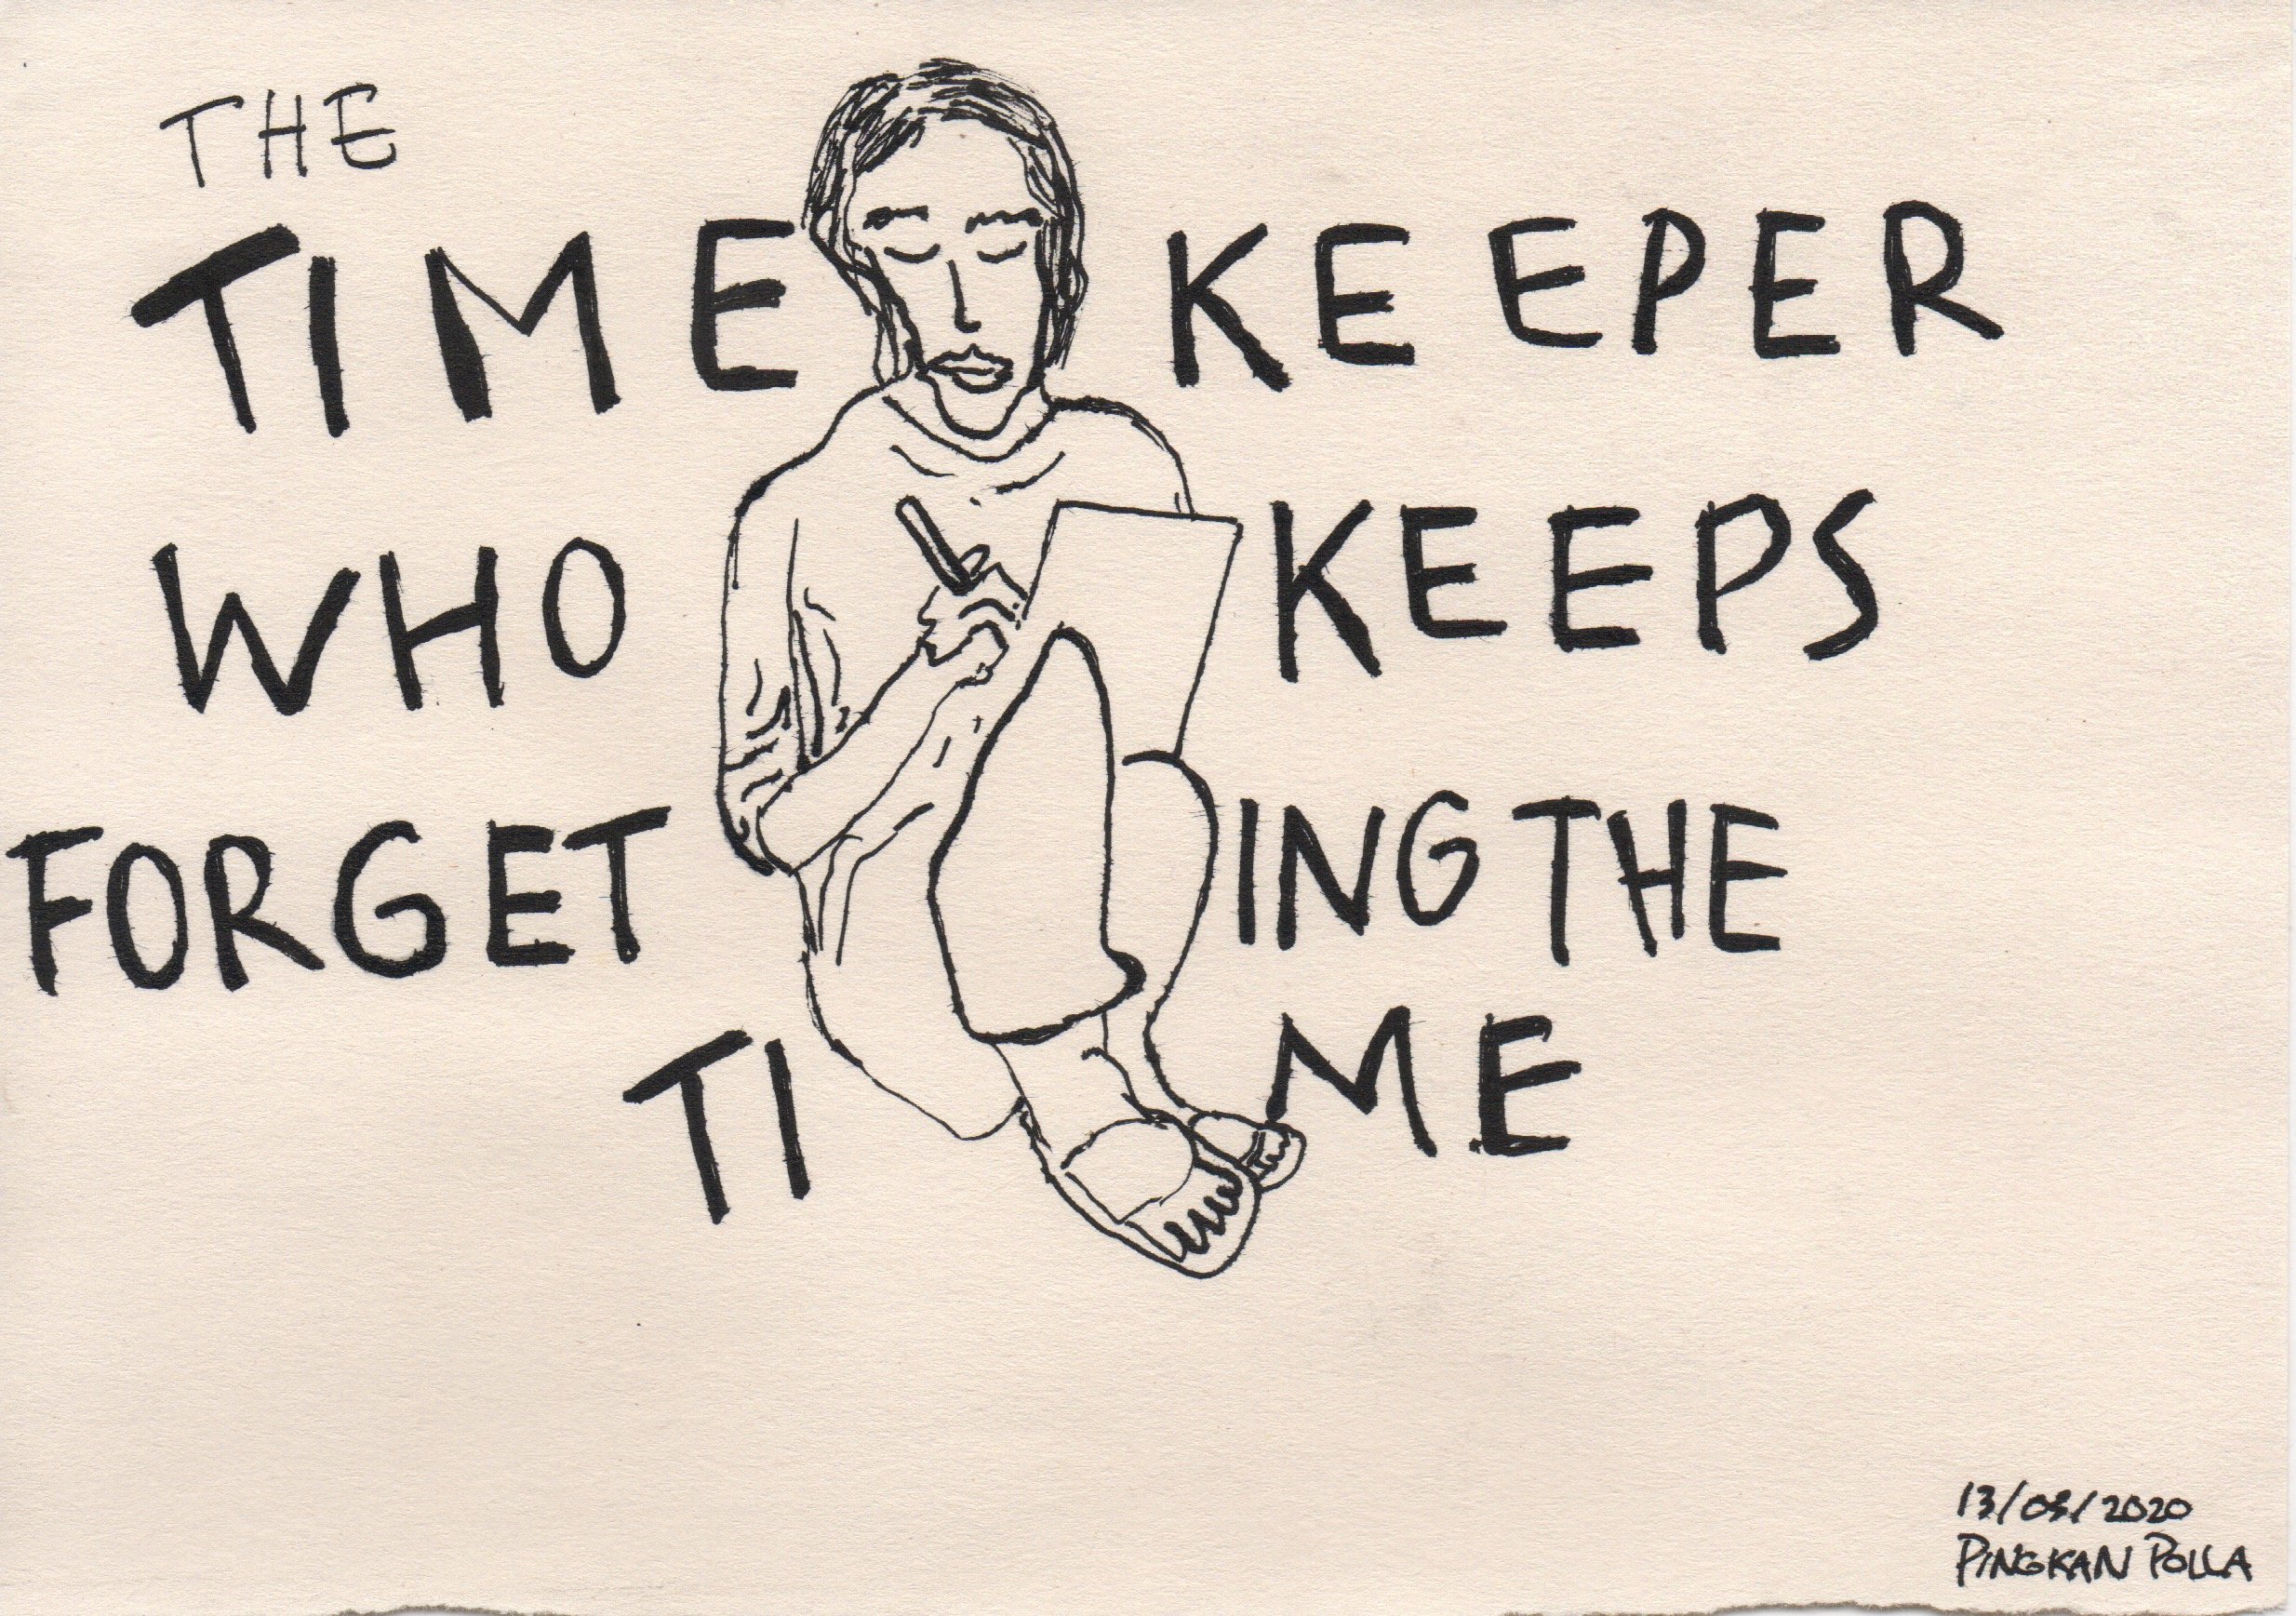 THE
TIME KEEPER
WHO KEEPS
FORGETING THE
TIME
13/03/2020
PINGKAN POLLA